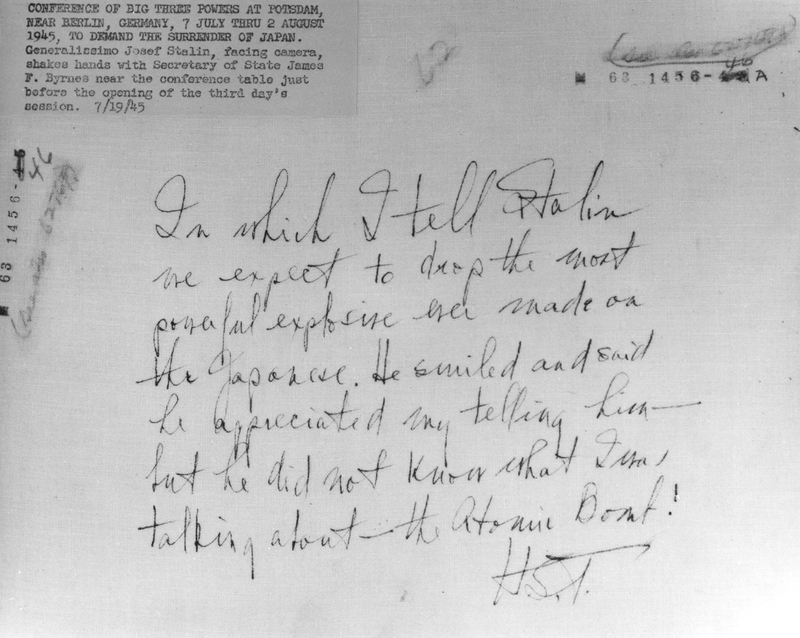 CONFERENCE OF BIG THREE POWERS AT POTSDAM,
NEAR BERLIN, GERMANY, 7 JULY THRU 2 AUGUST
1945, TO DEMAND THE SURRENDER OF JAPAN.
Generalissimo Josef Stalin, facing camera,
shakes hands with Secretary of State James
F. Byrnes near the conference table just
before the opening of the third day's
session. 7/19/45
62
46
63 1456- A
46
63 1456-
In which I tell Stalin
we expect to drop the most
powerful explosive ever made on
the Japanese. He smiled and said
he appreciated my telling him—
but he did not know what I was
talking about—the Atomic Bomb!
H.S.T.